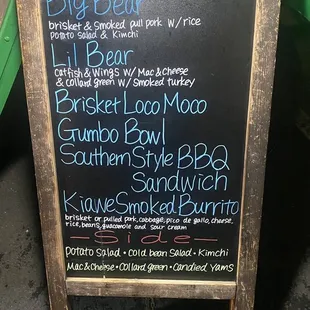 Big Bear
brisket & Smoked pull pork w/ rice
potato Salad & Kimchi
Lil Bear
Catfish & Wings w/ Mac & Cheese
& collard green w/ Smoked turkey
Brisket Loco Moco
Gumbo Bowl
Southern Style BBQ
Sandwich
Kiawe Smoked Burrito
brisket or pulled pork, cabbage, pico de gallo, cheese,
rice, beans, guacamole and sour cream
-Side-
potato Salad • cold bean Salad • Kimchi
Mac & Cheese • Collard green • Candied Yams